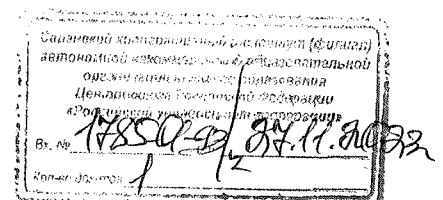 Саранский кооперативный институт (филиал)
автономной некоммерческой образовательной
организации высшего образования
Центросоюза Российской Федерации
«Российский университет кооперации»
Вх. № 27.11.2022
Кол-во листов 1